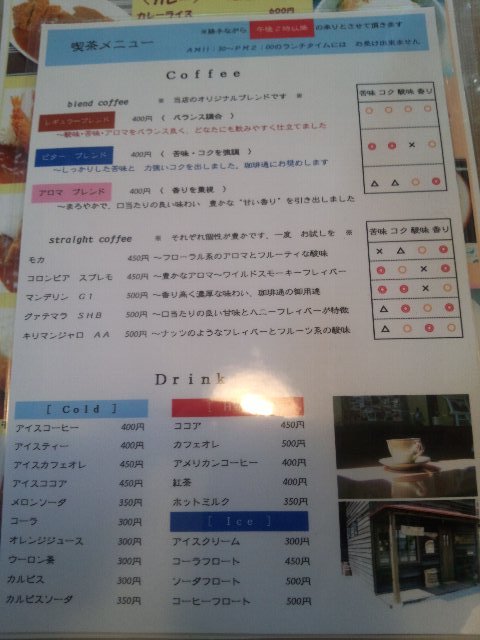 カレーライス
600円
喫茶メニュー
※勝手ながら 午後2時以降 の承りとさせて頂きます
AM11:30～PM2:00のランチタイムには お受け出来ません
Coffee
blend coffee ※ 当店のオリジナルブレンドです ※
苦味 コク 酸味 香り
レギュラーブレンド 400円 ( バランス議合 )
～酸味・苦味・アロマをバランス良く、どなたにも飲みやすく仕立てました
○ ○ ○ ○
ビター ブレンド 400円 ( 苦味・コクを強調 )
～しっかりした苦味と 力強いコクを出しました。珈琲通にお奨めします
◎ ◎ × ○
アロマ ブレンド 400円 ( 香りを重視 )
～まろやかで、口当たりの良い味わい 豊かな“甘い香り”を引き出しました
△ △ ○ ◎
straight coffee ※ それぞれ個性が豊かです、一度 お試しを ※
苦味 コク 酸味 香り
モカ 450円 ～フローラル系のアロマとフルーティな酸味
× △ ○ ◎
コロンビア スプレモ 450円 ～豊かなアロマ～ワイルドスモーキーフレィバー
◎ ○ × ◎
マンデリン G1 500円 ～香り高く濃厚な味わい、珈琲通の御用達
◎ ◎ × ○
グァテマラ SHB 500円 ～口当たりの良い甘味とハニーフレィバーが特徴
△ ◎ ○ ◎
キリマンジャロ AA 500円 ～ナッツのようなフレィバーとフルーツ系の酸味
△ ○ ◎ ○
Drink
[ Cold ]
アイスコーヒー 400円
アイスティー 400円
アイスカフェオレ 450円
アイスココア 450円
メロンソーダ 350円
コーラ 300円
オレンジジュース 300円
ウーロン茶 300円
カルピス 300円
カルピスソーダ 350円
ココア 450円
カフェオレ 500円
アメリカンコーヒー 400円
紅茶 400円
ホットミルク 350円
[ Ice ]
アイスクリーム 300円
コーラフロート 450円
ソーダフロート 500円
コーヒーフロート 500円